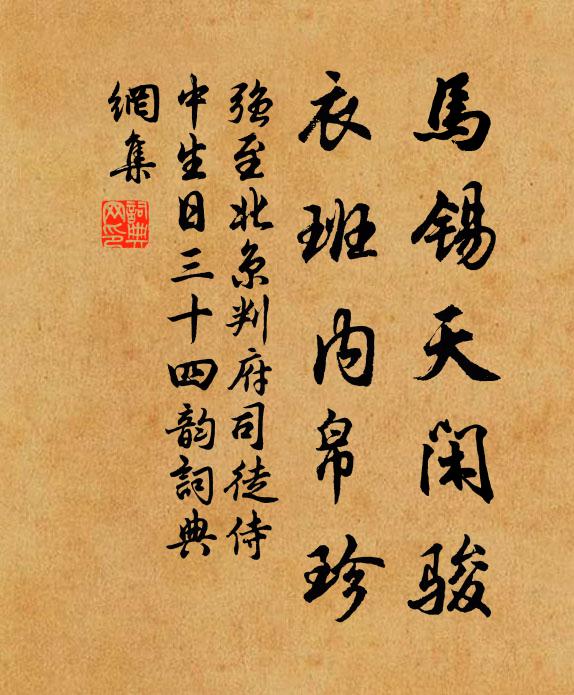 馬錫天闲骏
衣班内帛珍
强至北京判府司徒侍
中生日三十四韵詞典
網集
詞典网印